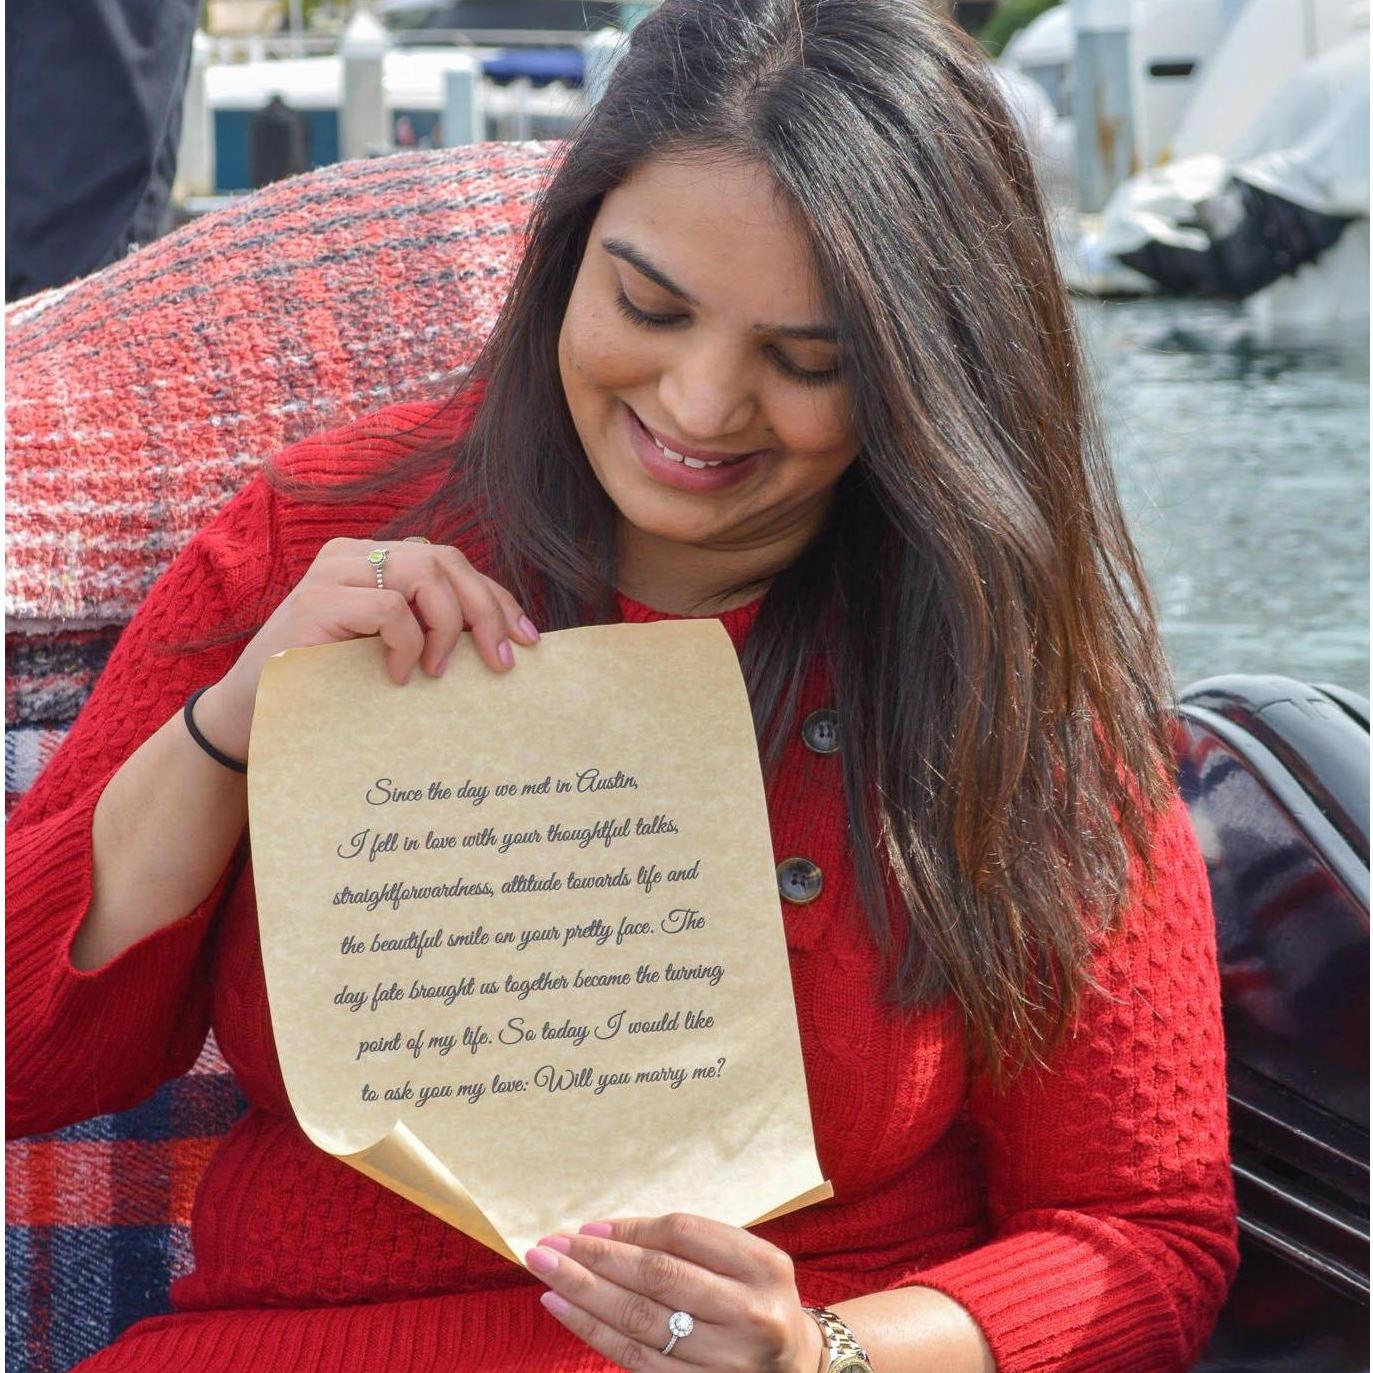 Since the day we met in Austin,
I fell in love with your thoughtful talks,
straightforwardness, attitude towards life and
the beautiful smile on your pretty face. The
day fate brought us together became the turning
point of my life. So today I would like
to ask you my love: Will you marry me?